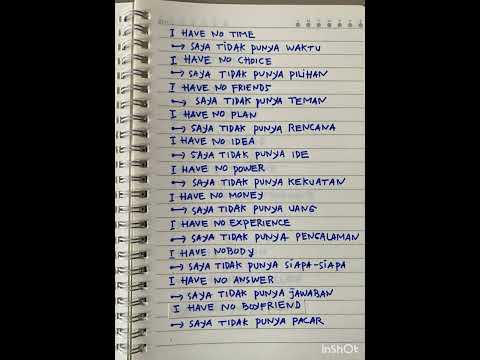 I HAVE NO TIME
→ SAYA TIDAK PUNYA WAKTU
I HAVE NO CHOICE
→ SAYA TIDAK PUNYA PILIHAN
I HAVE NO FRIENDS
→ SAYA TIDAK PUNYA TEMAN
I HAVE NO PLAN
→ SAYA TIDAK PUNYA RENCANA
I HAVE NO IDEA
→ SAYA TIDAK PUNYA IDE
I HAVE NO POWER
→ SAYA TIDAK PUNYA KEKUATAN
I HAVE NO MONEY
→ SAYA TIDAK PUNYA UANG
I HAVE NO EXPERIENCE
→ SAYA TIDAK PUNYA PENGALAMAN
I HAVE NOBODY
→ SAYA TIDAK PUNYA SIAPA-SIAPA
I HAVE NO ANSWER
→ SAYA TIDAK PUNYA JAWABAN
I HAVE NO BOYFRIEND
→ SAYA TIDAK PUNYA PACAR
InShOt